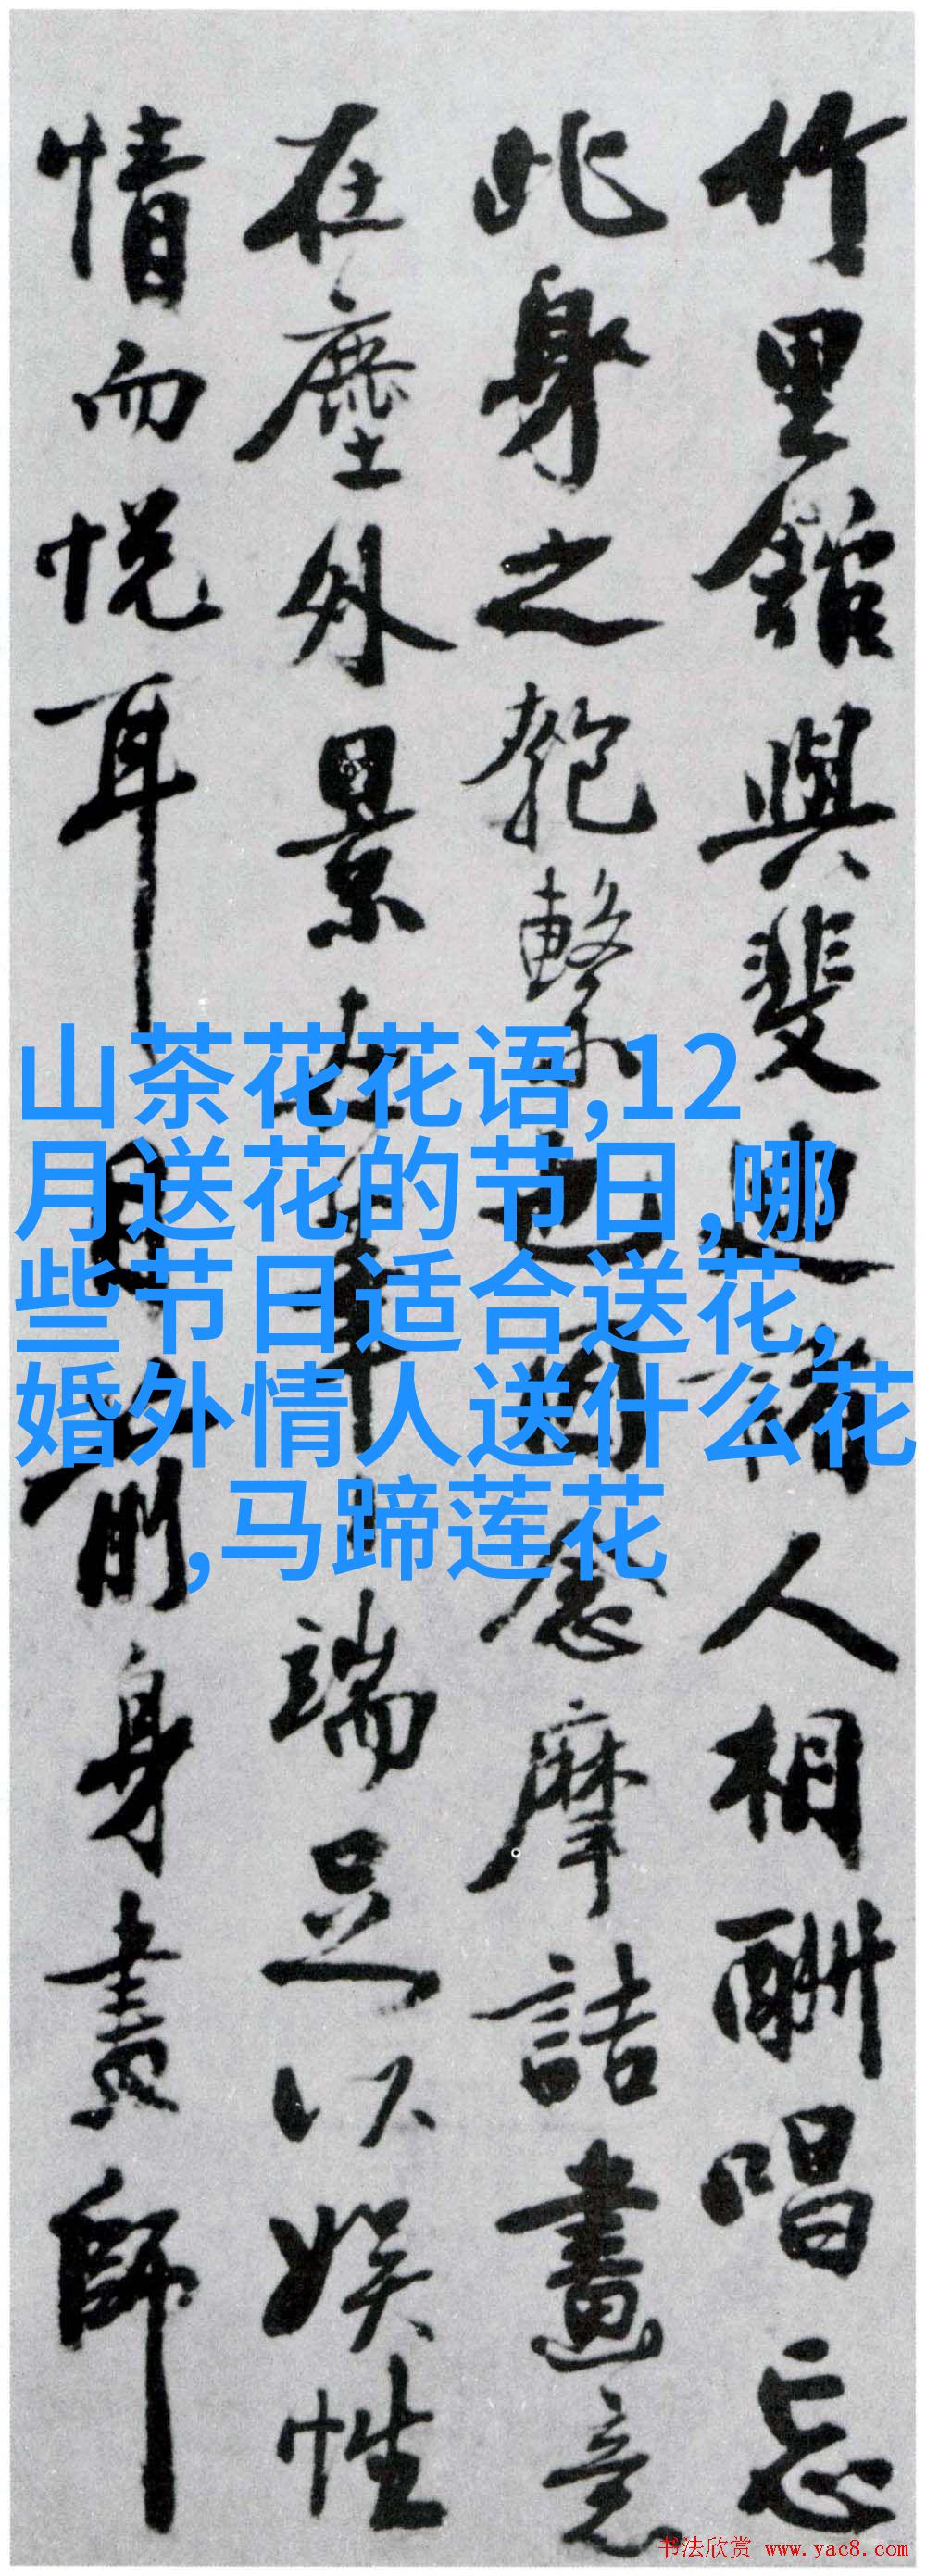 竹里館與斐迪諸人相酬唱忘
此身之匏繫也因念摩詰畫意
在塵外景在筆端足以娛性
情而悅耳目前身畫師
山茶花花语,12
月送花的节日,哪
些节日适合送花,
婚外情人送什么花
,马蹄莲花
书法欣赏 www.yac8.com